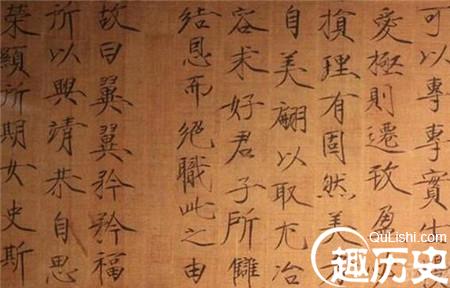 可以專專實生慢
愛極則遷致盈必
損理有固然美者
自美翩以取尤冶
容求好君子所讎
結恩而絕職此之由
故曰翼翼矜矜福
所以興靖恭自思
榮顯所期女史斯
QuLishi.com
趣历史